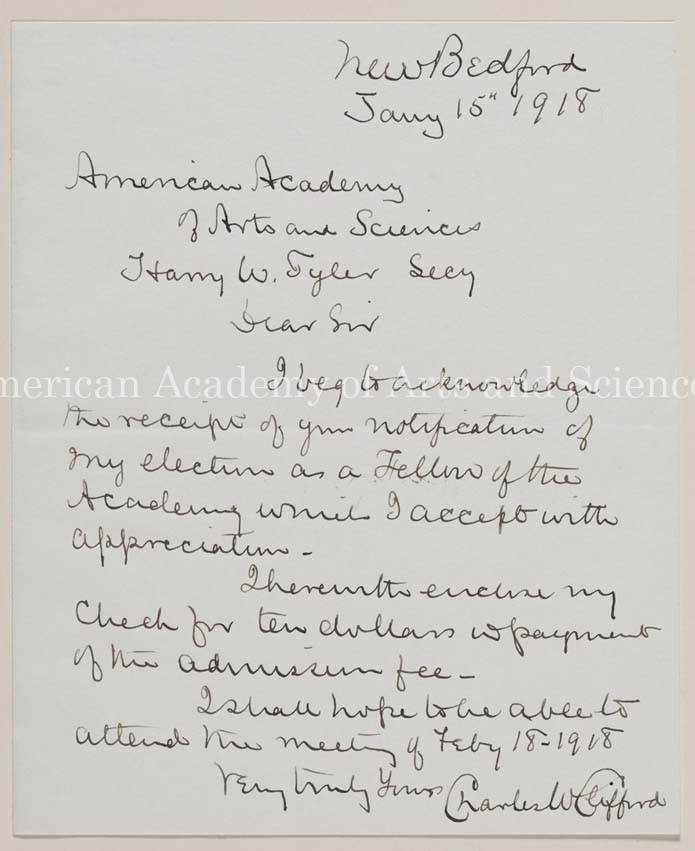 New Bedford
Jany 15" 1918
American Academy
of Arts and Sciences
Harry W. Tyler Secy
Dear Sir
I beg to acknowledge
the receipt of your notification of
my election as a Fellow of the
Academy which I accept with
appreciation -
I herewith enclose my
Check for ten dollars in payment
of the admission fee -
I shall hope to be able to
attend the meeting of Feby 18-1918
Very truly Yours Charles W Clifford
American Academy of Arts and Sciences